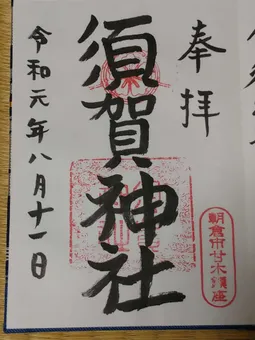 奉拝
須賀神社
朝倉市甘木鎮座
令和元年八月十一日